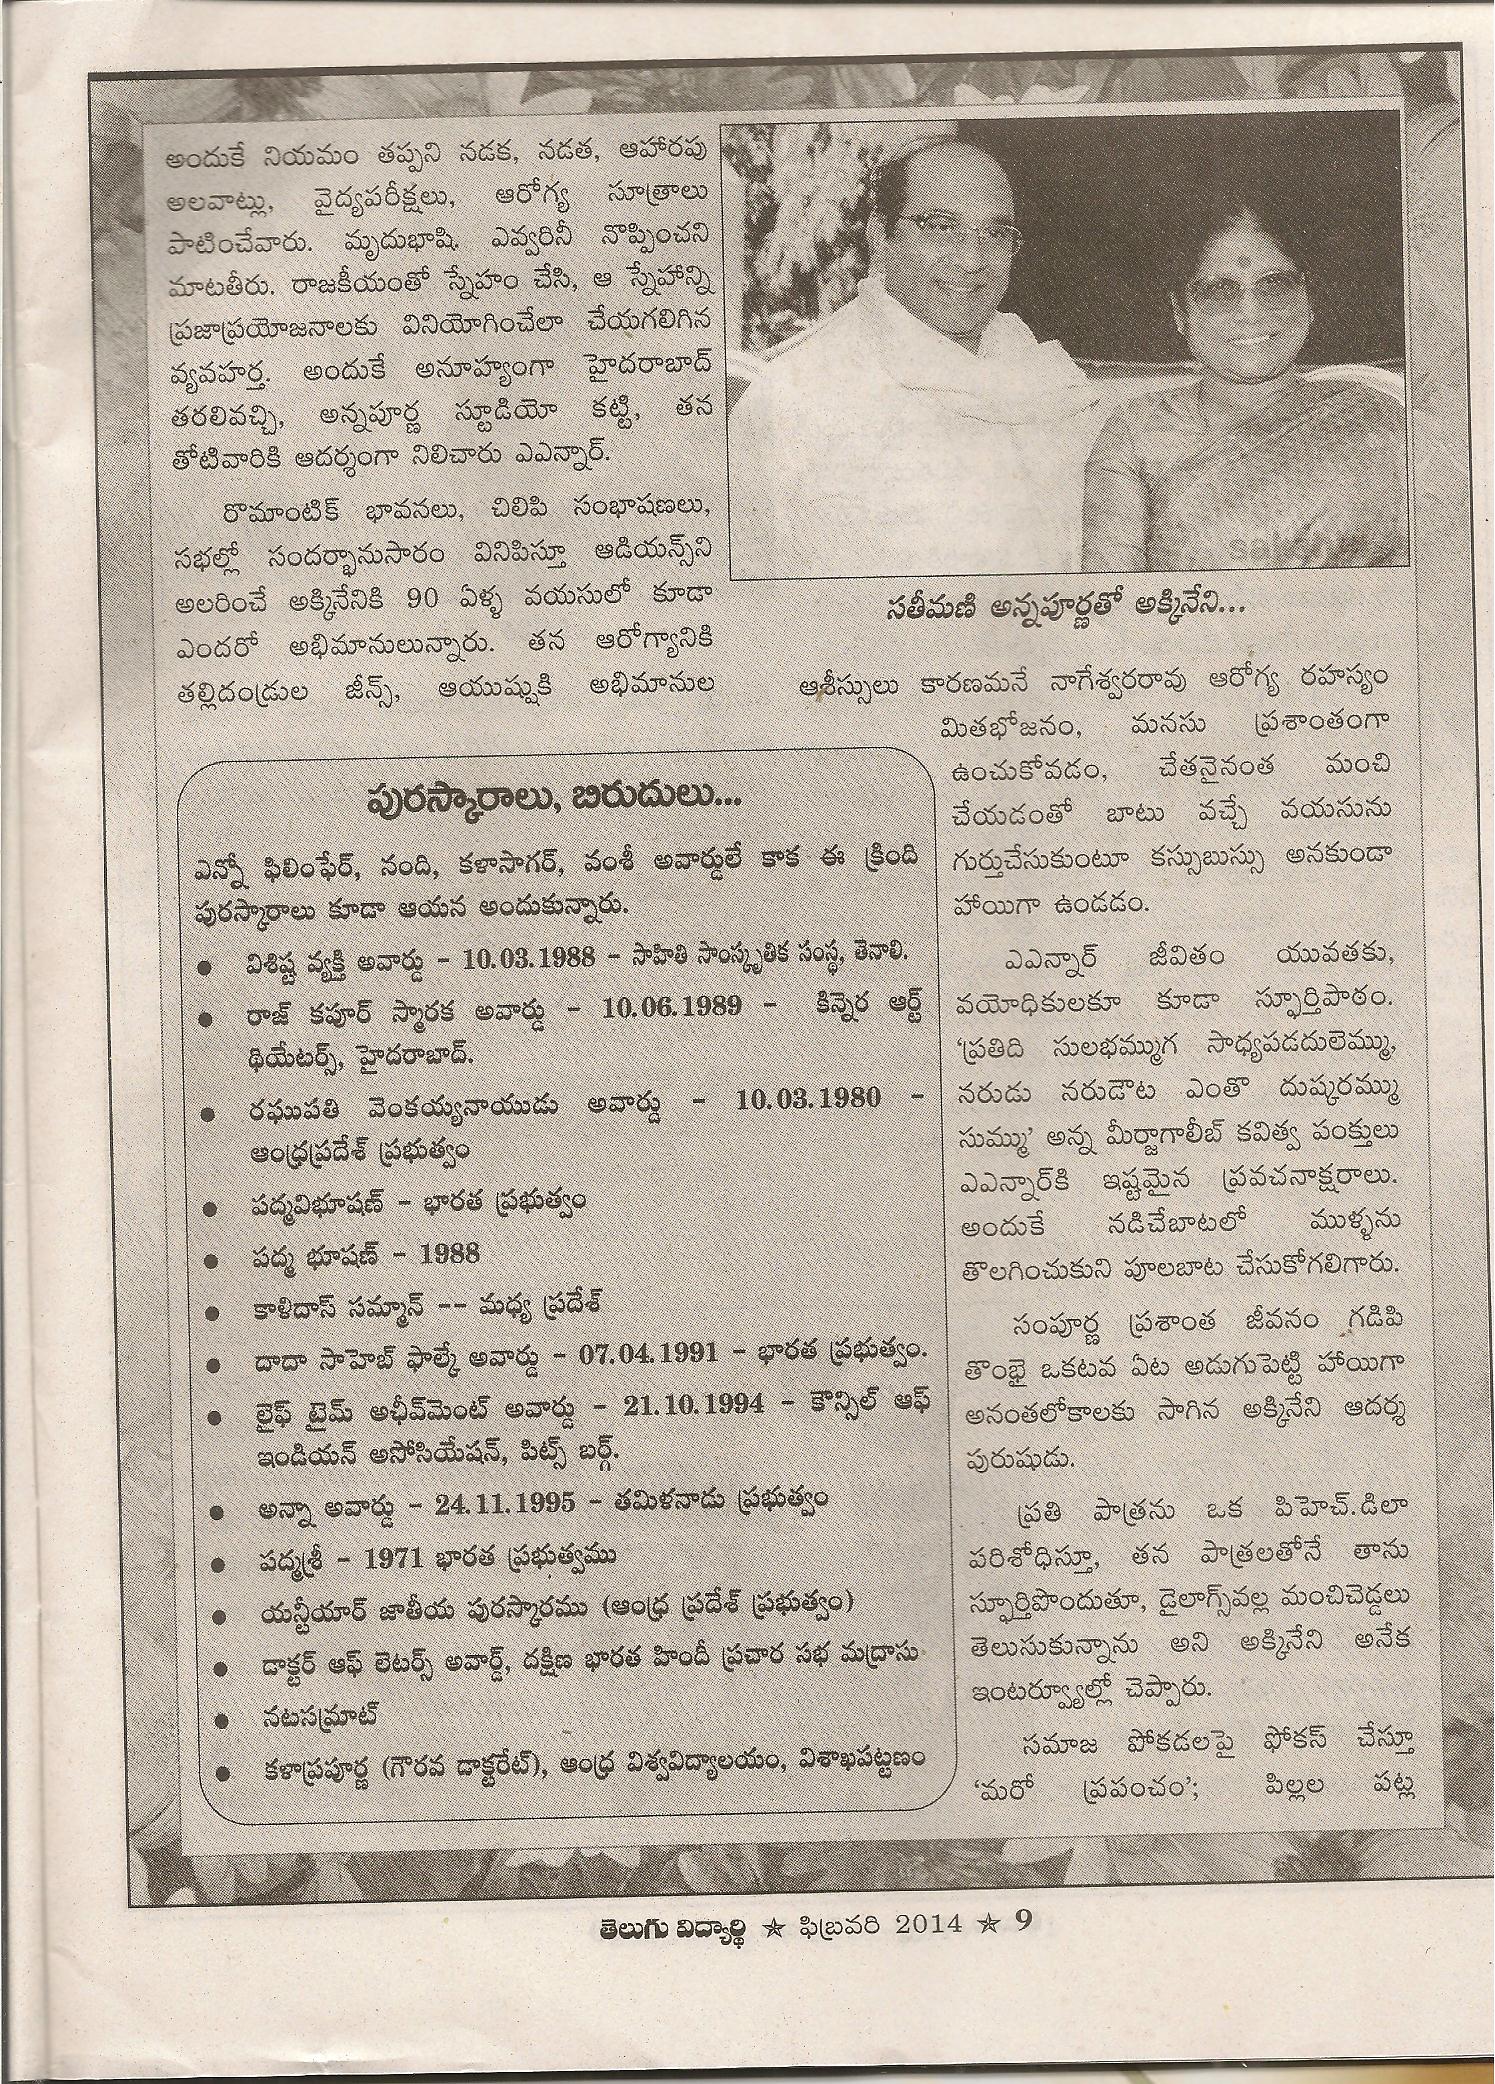 అందుకే నియమం తప్పని నడక, నడత, ఆహారపు
అలవాట్లు, వైద్యపరీక్షలు, ఆరోగ్య సూత్రాలు
పాటించేవారు. మృదుభాషి. ఎవ్వరినీ నొప్పించని
మాటతీరు. రాజకీయంతో స్నేహం చేసి, ఆ స్నేహాన్ని
ప్రజాప్రయోజనాలకు వినియోగించేలా చేయగలిగిన
వ్యవహర్త. అందుకే అనూహ్యంగా హైదరాబాద్
తరలివచ్చి, అన్నపూర్ణ స్టూడియో కట్టి, తన
తోటివారికి ఆదర్శంగా నిలిచారు ఎఎన్నార్.
రొమాంటిక్ భావనలు, చిలిపి సంభాషణలు,
సభల్లో సందర్భానుసారం వినిపిస్తూ ఆడియన్స్‌ని
అలరించే అక్కినేనికి 90 ఏళ్ళ వయసులో కూడా
ఎందరో అభిమానులున్నారు. తన ఆరోగ్యానికి
తల్లిదండ్రుల జీన్స్, ఆయుష్షుకి అభిమానుల
సతీమణి అన్నపూర్ణతో అక్కినేని...
ఆశీస్సులు కారణమనే నాగేశ్వరరావు ఆరోగ్య రహస్యం
మితభోజనం, మనసు ప్రశాంతంగా
ఉంచుకోవడం, చేతనైనంత మంచి
చేయడంతో బాటు వచ్చే వయసును
గుర్తుచేసుకుంటూ కస్సుబుస్సు అనకుండా
హాయిగా ఉండడం.
ఎఎన్నార్ జీవితం యువతకు,
వయోధికులకూ కూడా స్ఫూర్తిపాఠం.
'ప్రతిది సులభమ్ముగ సాధ్యపడదులెమ్ము,
నరుడు నరుడౌట ఎంతొ దుష్కరమ్ము
సుమ్ము' అన్న మీర్జాగాలీబ్ కవిత్వ పంక్తులు
ఎఎన్నార్‌కి ఇష్టమైన ప్రవచనాక్షరాలు.
అందుకే నడిచేబాటలో ముళ్ళను
తొలగించుకుని పూలబాట చేసుకోగలిగారు.
సంపూర్ణ ప్రశాంత జీవనం గడిపి
తొంభై ఒకటవ ఏట అడుగుపెట్టి హాయిగా
అనంతలోకాలకు సాగిన అక్కినేని ఆదర్శ
పురుషుడు.
ప్రతి పాత్రను ఒక పిహెచ్.డిలా
పరిశోధిస్తూ, తన పాత్రలతోనే తాను
స్ఫూర్తిపొందుతూ, డైలాగ్స్‌వల్ల మంచిచెడ్డలు
తెలుసుకున్నాను అని అక్కినేని అనేక
ఇంటర్వ్యూల్లో చెప్పారు.
సమాజ పోకడలపై ఫోకస్ చేస్తూ
'మరో ప్రపంచం'; పిల్లల పట్ల
పురస్కారాలు, బిరుదులు...
ఎన్నో ఫిలింఫేర్, నంది, కళాసాగర్, వంశీ అవార్డులే కాక ఈ క్రింది
పురస్కారాలు కూడా ఆయన అందుకున్నారు.
● విశిష్ట వ్యక్తి అవార్డు - 10.03.1988 - సాహితి సాంస్కృతిక సంస్థ, తెనాలి.
● రాజ్ కపూర్ స్మారక అవార్డు - 10.06.1989 - కిన్నెర ఆర్ట్
థియేటర్స్, హైదరాబాద్.
● రఘుపతి వెంకయ్యనాయుడు అవార్డు - 10.03.1980 -
ఆంధ్రప్రదేశ్ ప్రభుత్వం
● పద్మవిభూషణ్ - భారత ప్రభుత్వం
● పద్మ భూషణ్ - 1988
● కాళిదాస్ సమ్మాన్ -- మధ్య ప్రదేశ్
● దాదా సాహెబ్ ఫాల్కే అవార్డు - 07.04.1991 - భారత ప్రభుత్వం.
● లైఫ్ టైమ్ అఛీవ్‌మెంట్ అవార్డు - 21.10.1994 - కౌన్సిల్ ఆఫ్
ఇండియన్ అసోసియేషన్, పిట్స్ బర్గ్.
● అన్నా అవార్డు - 24.11.1995 - తమిళనాడు ప్రభుత్వం
● పద్మశ్రీ - 1971 భారత ప్రభుత్వము
● యన్టీయార్ జాతీయ పురస్కారము (ఆంధ్ర ప్రదేశ్ ప్రభుత్వం)
● డాక్టర్ ఆఫ్ లెటర్స్ అవార్డ్, దక్షిణ భారత హిందీ ప్రచార సభ మద్రాసు
● నటసమ్రాట్
● కళాప్రపూర్ణ (గౌరవ డాక్టరేట్), ఆంధ్ర విశ్వవిద్యాలయం, విశాఖపట్టణం
తెలుగు విద్యార్థి ★ ఫిబ్రవరి 2014 ★ 9